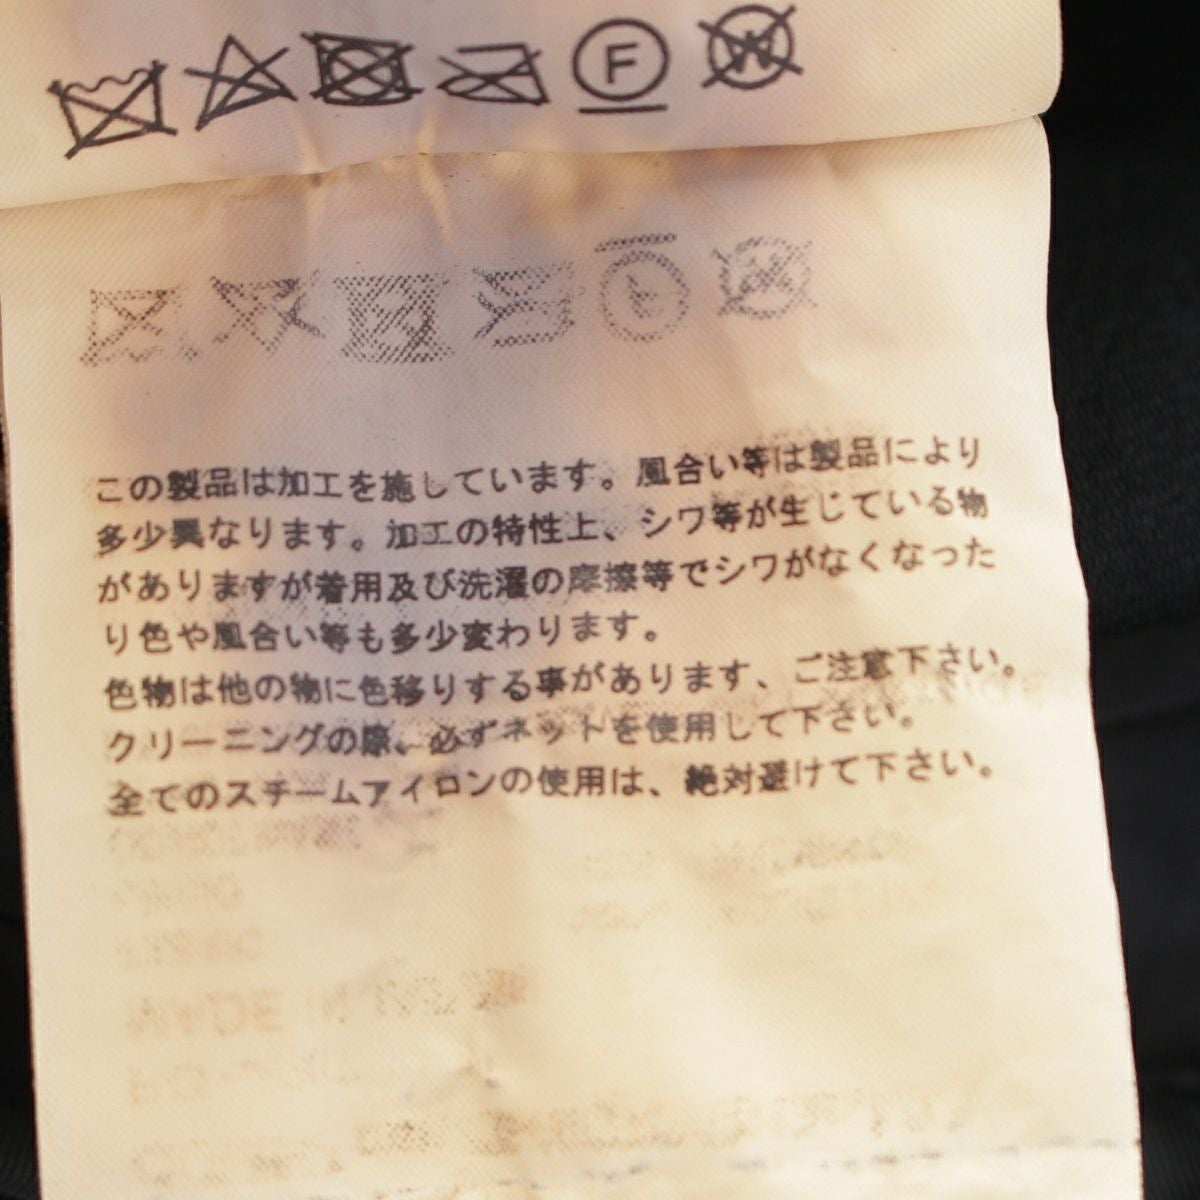 F
W
この製品は加工を施しています。風合い等は製品により
多少異なります。加工の特性上、シワ等が生じている物
がありますが着用及び洗濯の摩擦等でシワがなくなった
り色や風合い等も多少変わります。
色物は他の物に色移りする事があります、ご注意下さい。
クリーニングの際、必ずネットを使用して下さい。
全てのスチームアイロンの使用は、絶対避けて下さい。
MADE IN